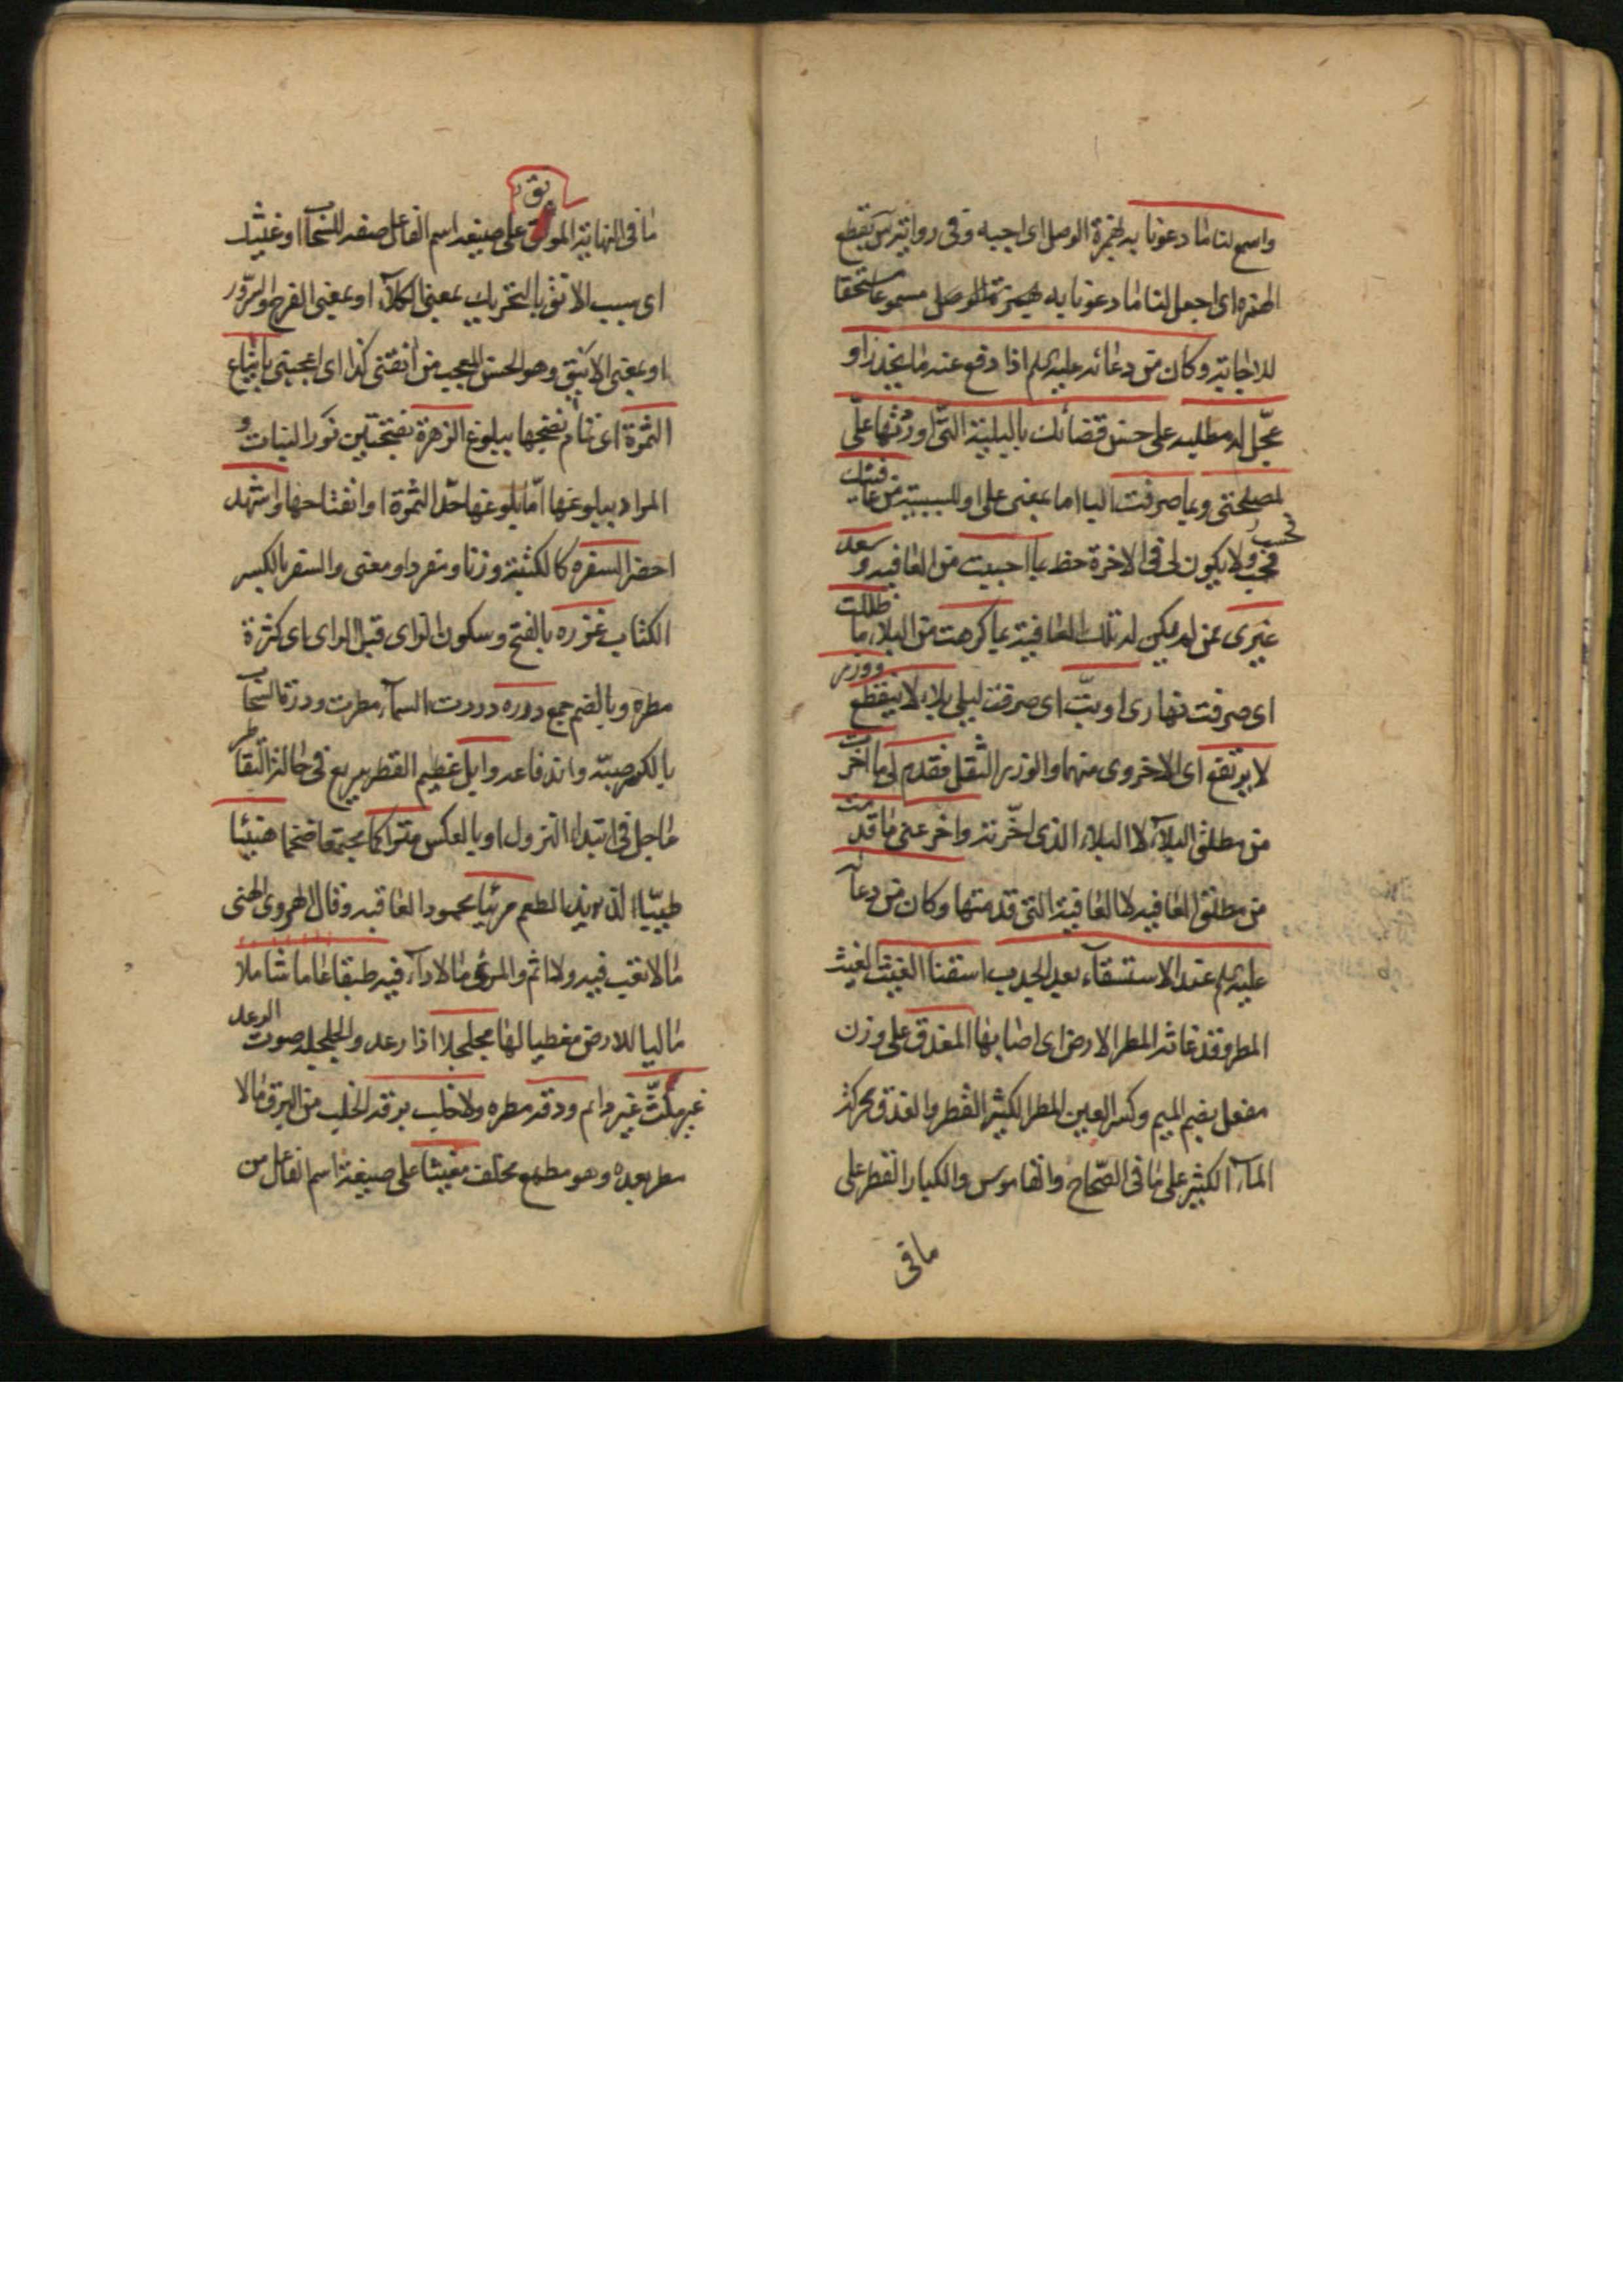 واسمع لنا ما دعونا به بهمزة الوصل اى اجبه وفى رواية س بقطع
الهمزه اى اجعل لنا ما دعونا به بهمزة الوصل مسموعا مستحقا
للاجابة وكان من دعائه عليه السلم اذا دفع عنه ما يحذر او
عجّل له مطلبه على حسن قضائك بالبلية التى ورثتها على
لمصلحتى وبما صرفت البا اما بمعنى على او للسببية من عافيتك
فحسب ولا يكون لى فى الاخرة حظ بما احببت من العافيه وسعد
غيرى ممن لم يكن له تلك العافية بما كرهت من البلاء ما ظللت
اى صرفت نهارى او بتّ اى صرفت ليلى بلاء لا ينقطع ووزر
لا يرتفع اى الاخروى منهما والوزر الثقل فقدم لى ما اخرت
من مطلق البلاء لا البلاء الذى اخّرته واخر عنى ما قدمت
من مطلق العافيه لا العافية التى قدمتها وكان من دعائه
عليه السلم عند الاستسقاء بعد الجدب اسقنا الغيث الغيث
المطر وقد غاث المطر الارض اى اصابها المغدق على وزن
مفعل بضم الميم وكسر العين المطر الكثير القطر والغدق محركة
الماء الكثير على ما فى الصّحاح والقاموس والكبار القطر على
ما فى
ما فى النهاية المونق على صيغه اسم الفاعل صفه للسحاب او غيثك
اى بسبب الانق بالتحريك بمعنى الكلاء او بمعنى الفرح والسّرور
او بمعنى الانيق وهو الحسن المعجب من آنقنى كذا اى اعجبنى بايناع
الثمرة اى تمام نضجها ببلوغ الزهرة بفتحتين نور النبات و
المراد ببلوغها امّا بلوغها حدّ الثمرة او انفتاحها واشهد
احضر السفره كالكتبة وزنا ومفردا ومعنى والسفر بالكسر
الكتاب غزره بالفتح وسكون الزاى قبل الراى اى كثرة
مطره وبالضم جمع درره دررت السماء مطرت ودرة السحاب
بالكسر صبّه واندفاعه وابل عظيم القطر سريع فى حالة التقاطر
ماجل فى ابتداء النزول او بالعكس متراكما مجتمعا ضخما هنيئا
طيبّا لذيذ الطعم مريّا محمود العاقبه وقال الهروى الهنى
ما لا تعب فيه ولا اثم والمرئ ما لا داء فيه طبقا عاما شاملا
ماليا للارض مغطيا لها مجلجلا اذا رعد والجلجله صوت الرعد
غير ملثّ غير دائم ودقه مطره ولا خلب برقه الخلب من البرق ما لا
مطر بعده وهو مطمع مخلف مغيثا على صيغة اسم الفاعل من